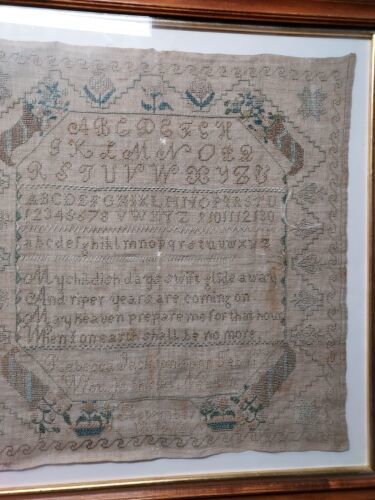 ABCDEFGH
IKLMNOPQ
RSTUVWXYZ
ABCDEFGHIKLMNOPQRSTU
12345678 VWXYZ 9 10 11 12 13 0
abcdefghiklmnopqrstuvwxyz
My childish days swift glide away
And riper years are coming on
May heaven prepare me for that hou
When I on earth shall be no more
Rebecca
Work